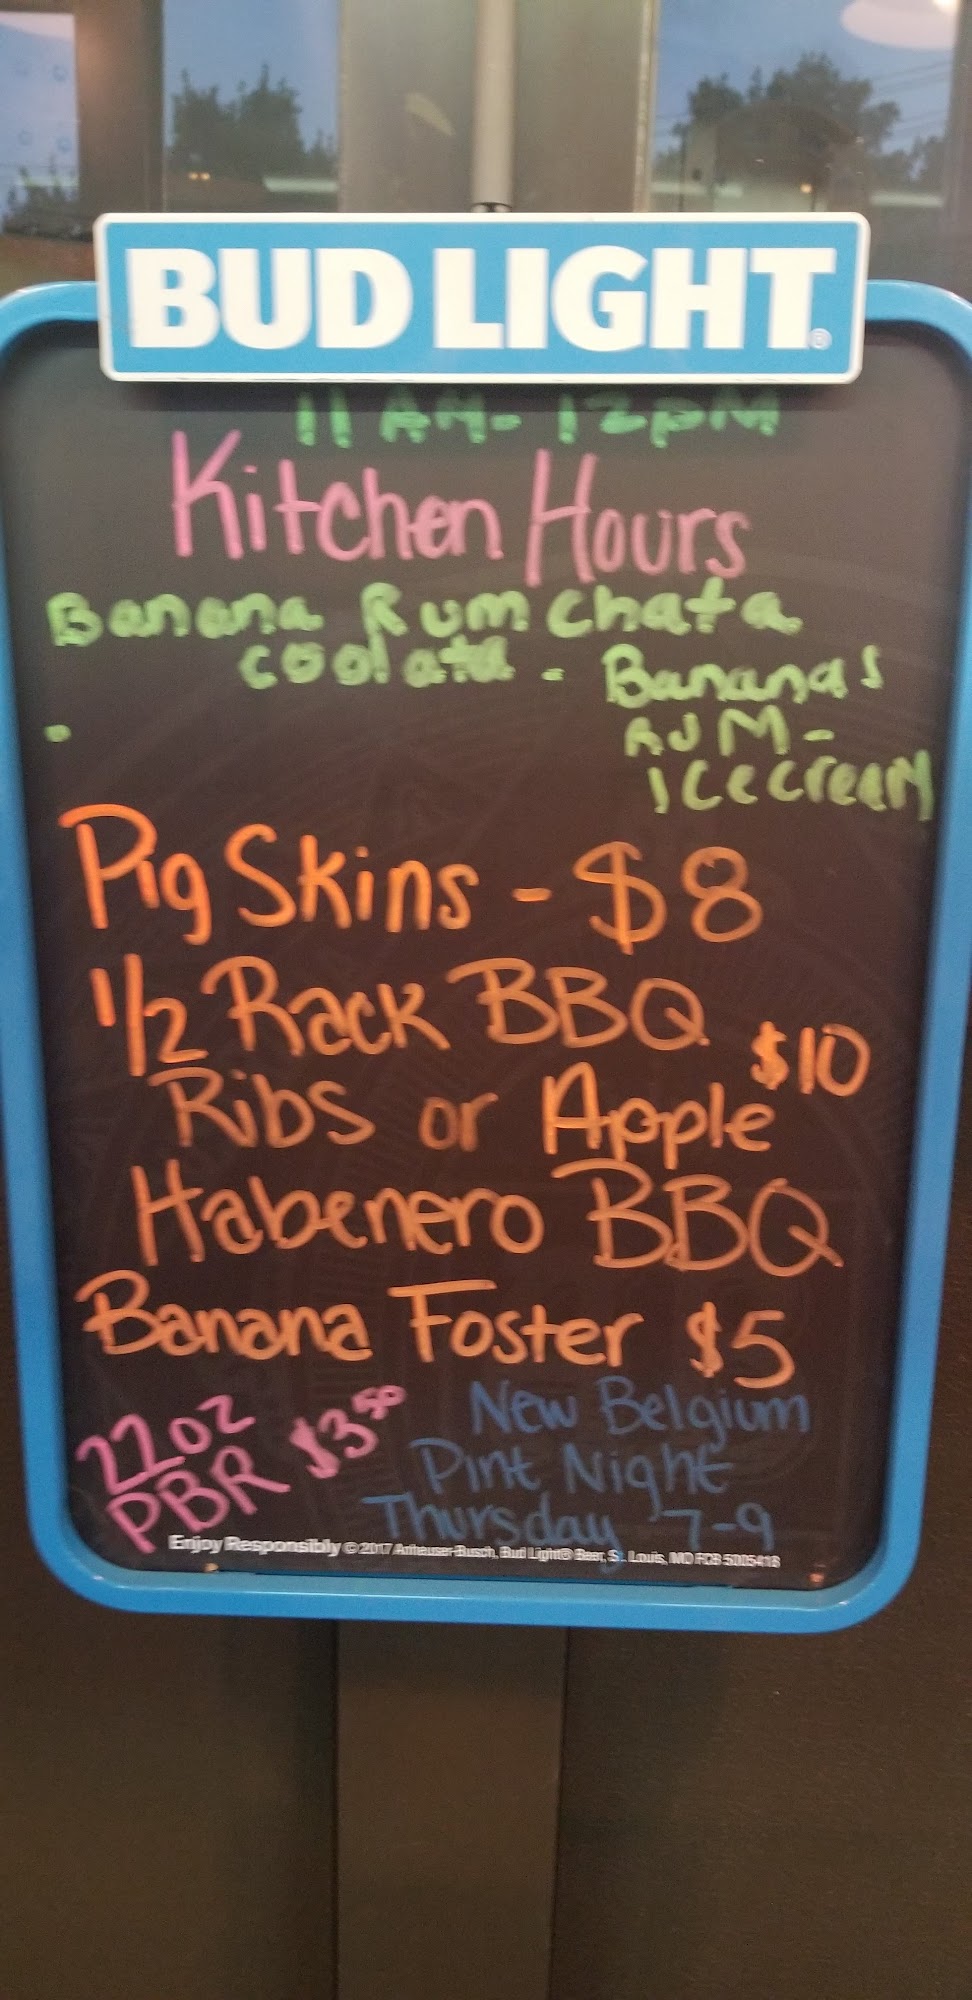 BUD LIGHT
11 AM - 12 PM
Kitchen Hours
Banana Rum Chata
coolata - Bananas
RUM -
Icecream
Pig Skins - $8
1/2 Rack BBQ
$10
Ribs or Apple
Habenero BBQ
Banana Foster $5
22 oz
PBR $3.50
New Belgium
Pint Night
Thursday 7-9
Enjoy Responsibly © 2017 Anheuser-Busch, Bud Light® Beer, St. Louis, MO FCB 5005418